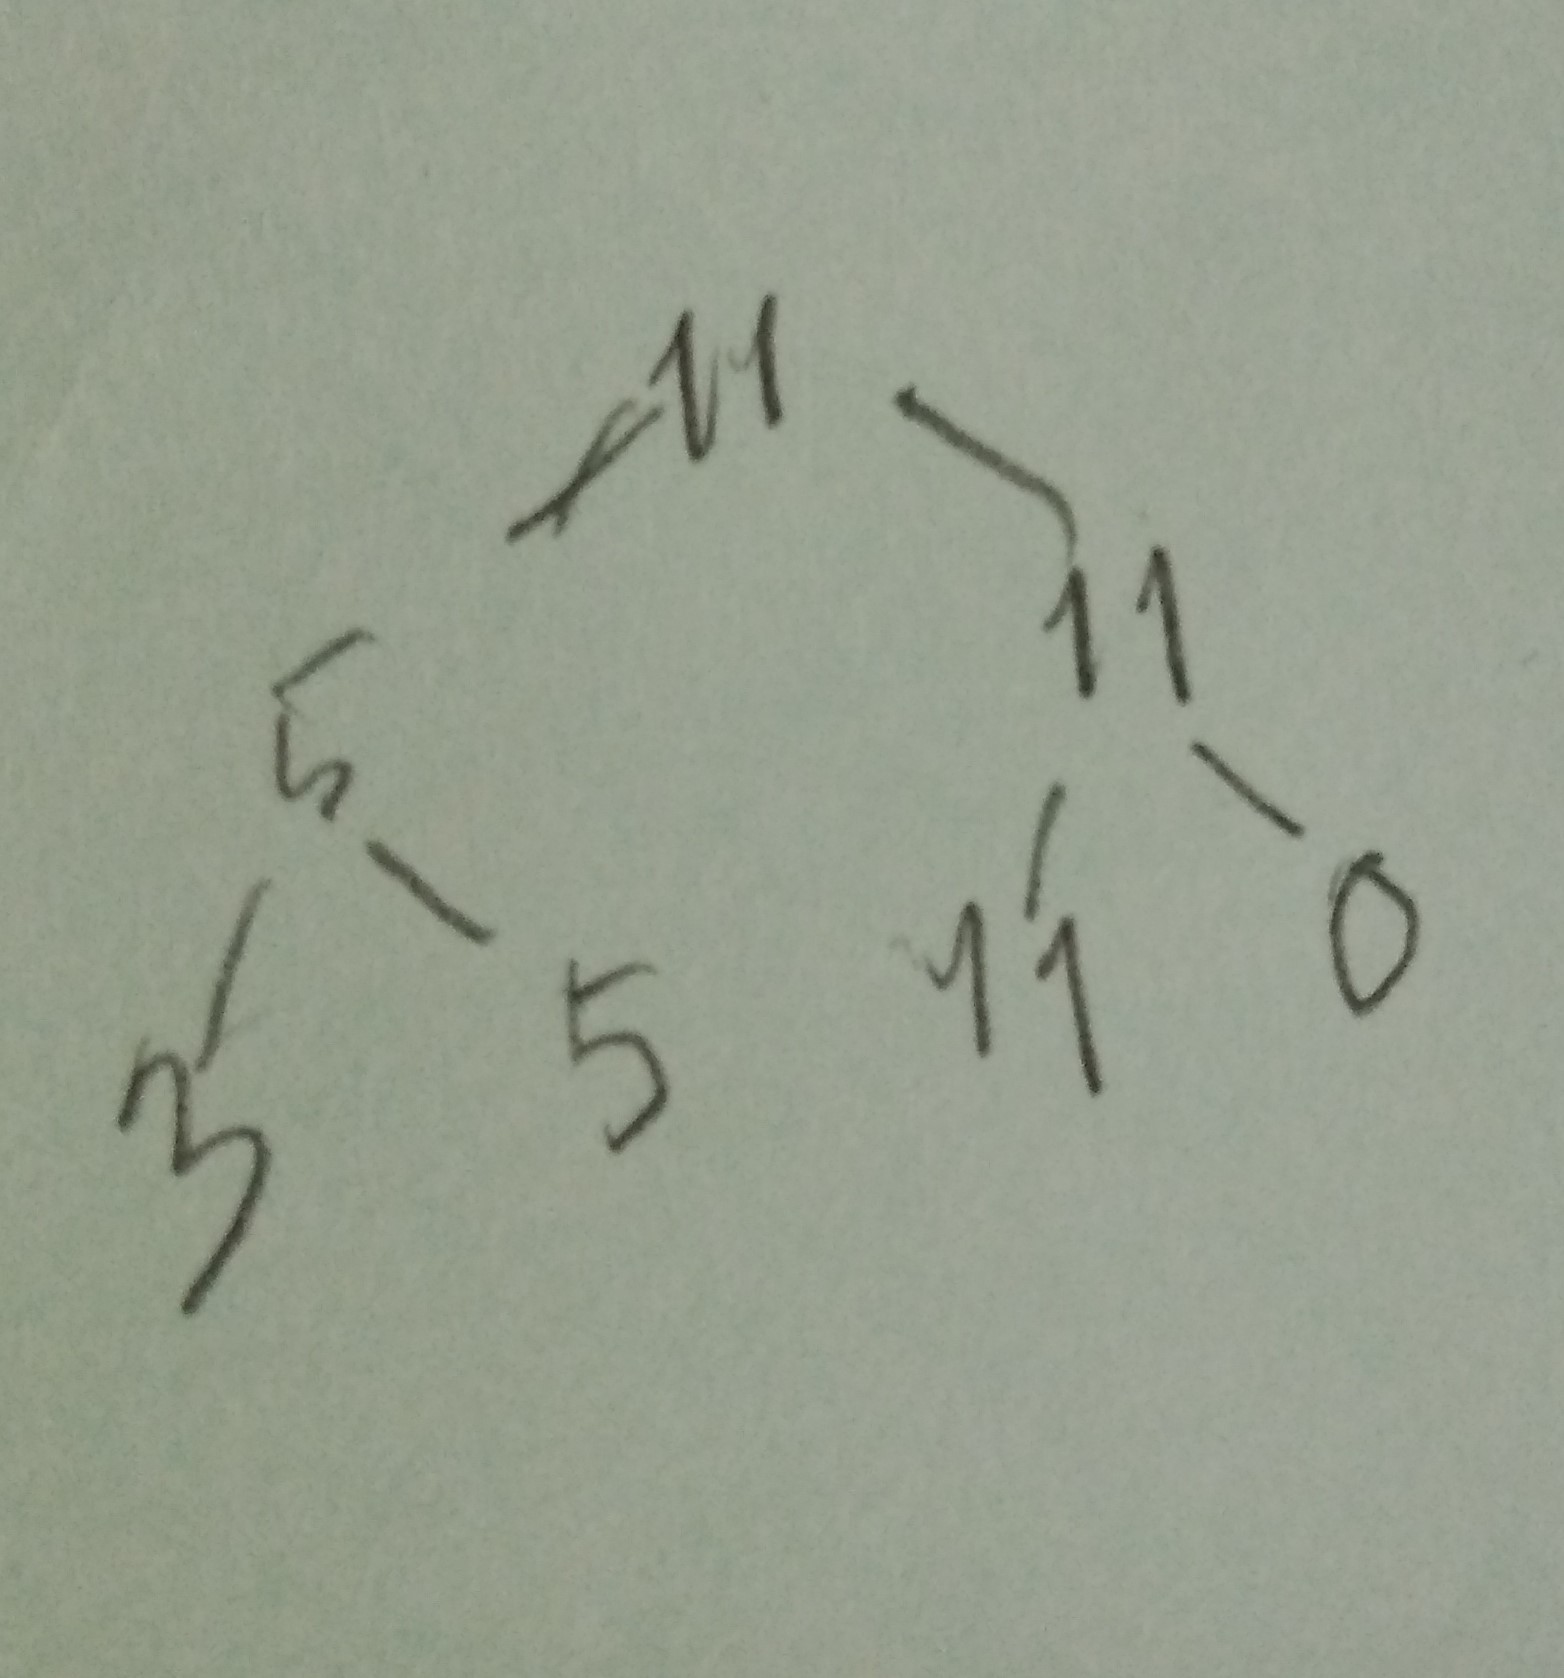 11
5 11
3 5 11 0